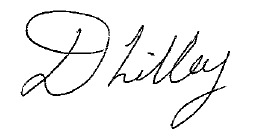 D Lilley